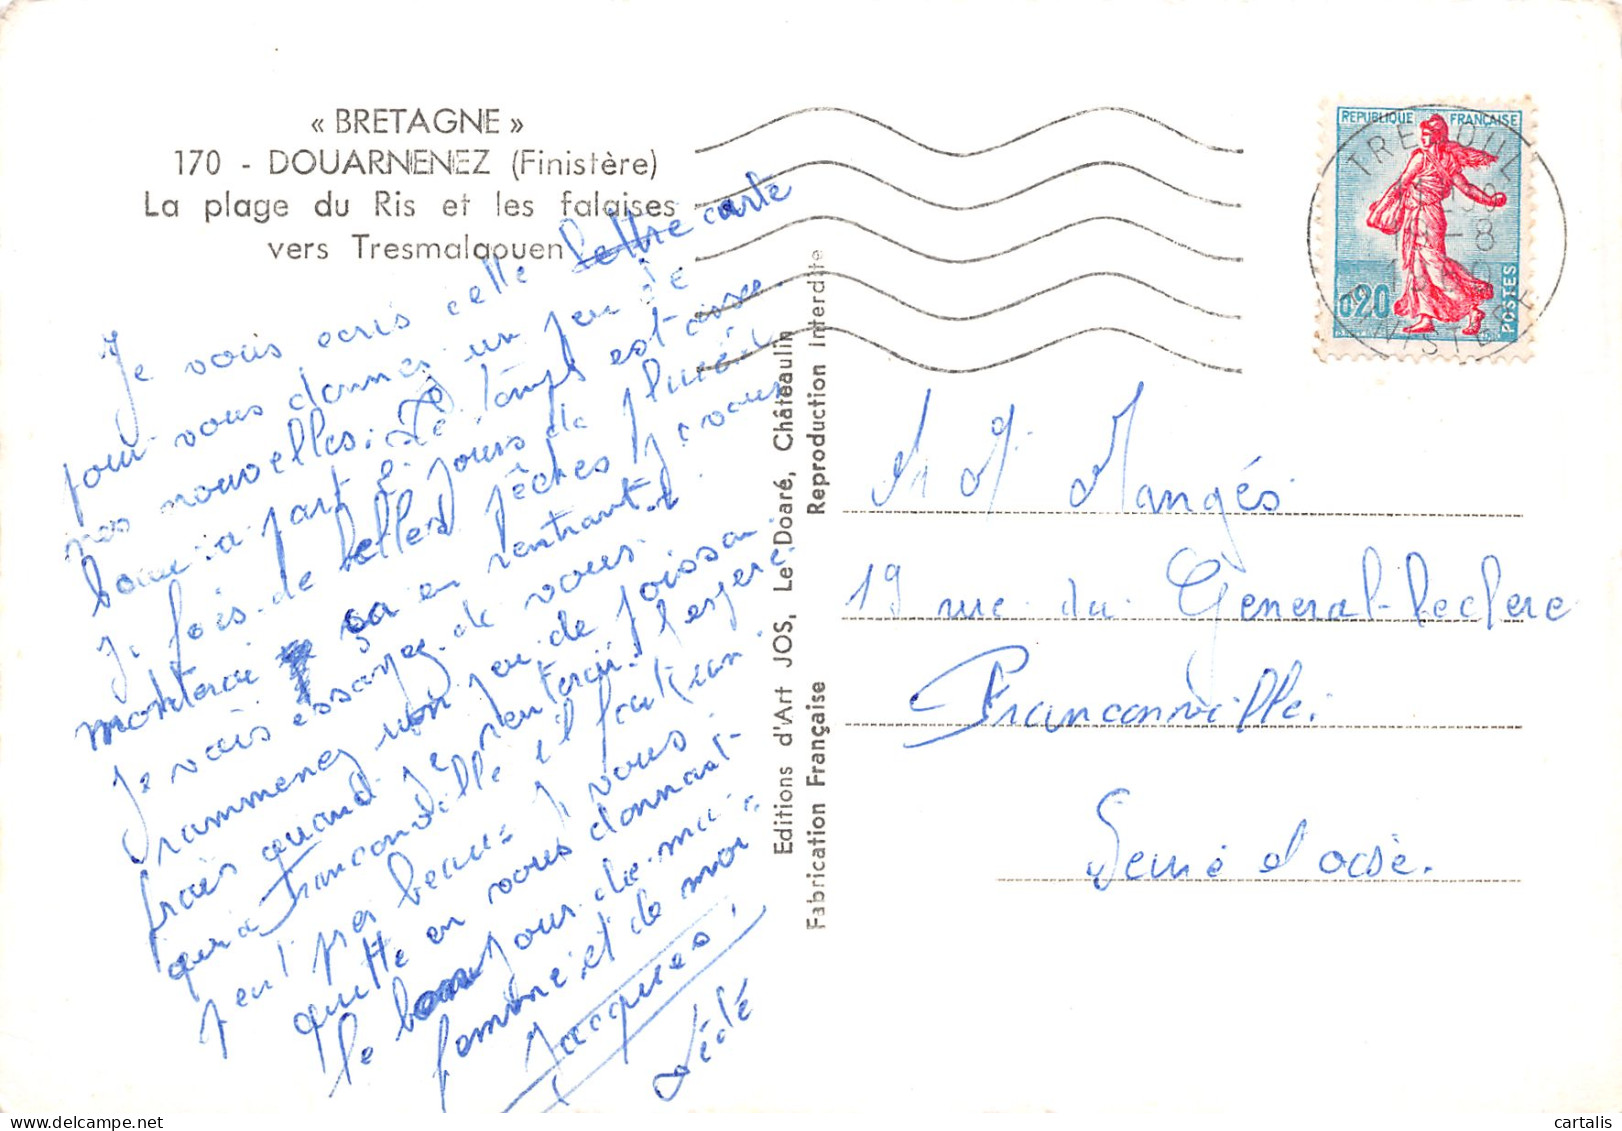 « BRETAGNE »
170 - DOUARNENEZ (Finistère)
La plage du Ris et les falaises
vers Tresmalaouen
Je vous ecris cette lettre carte
pour vous donner un peu de
nos nouvelles. Le temps est assez
bon a part 2 jours de pluie
J. fais de belles pêches je vous
monterai sa en rentrant.
Je vais essayez de vous
rammenez un peu de poisson
frais quand je rentrerai. J'espere
qu'a Franconville il fait un
peut per beau. J vous
quitte en vous donnant
le bonjour de ma
femme et de moi
Jacques
Dédé
Editions d'Art JOS, Le Doaré, Châteaulin
Fabrication Française Reproduction Interdite
REPUBLIQUE FRANÇAISE
0,20
POSTES
TREBOUL
FINISTERE
M Mangés
19 rue du General-Leclerc
Franconville.
Seine d oise.
cartalis